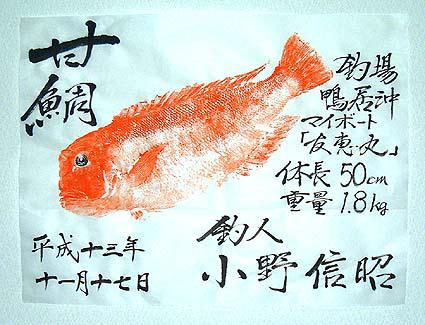 甘鯛
釣場
鴨居沖
マイボート
「友恵丸」
体長50cm
重量1.8kg
釣人
小野信昭
平成十三年
十一月十七日